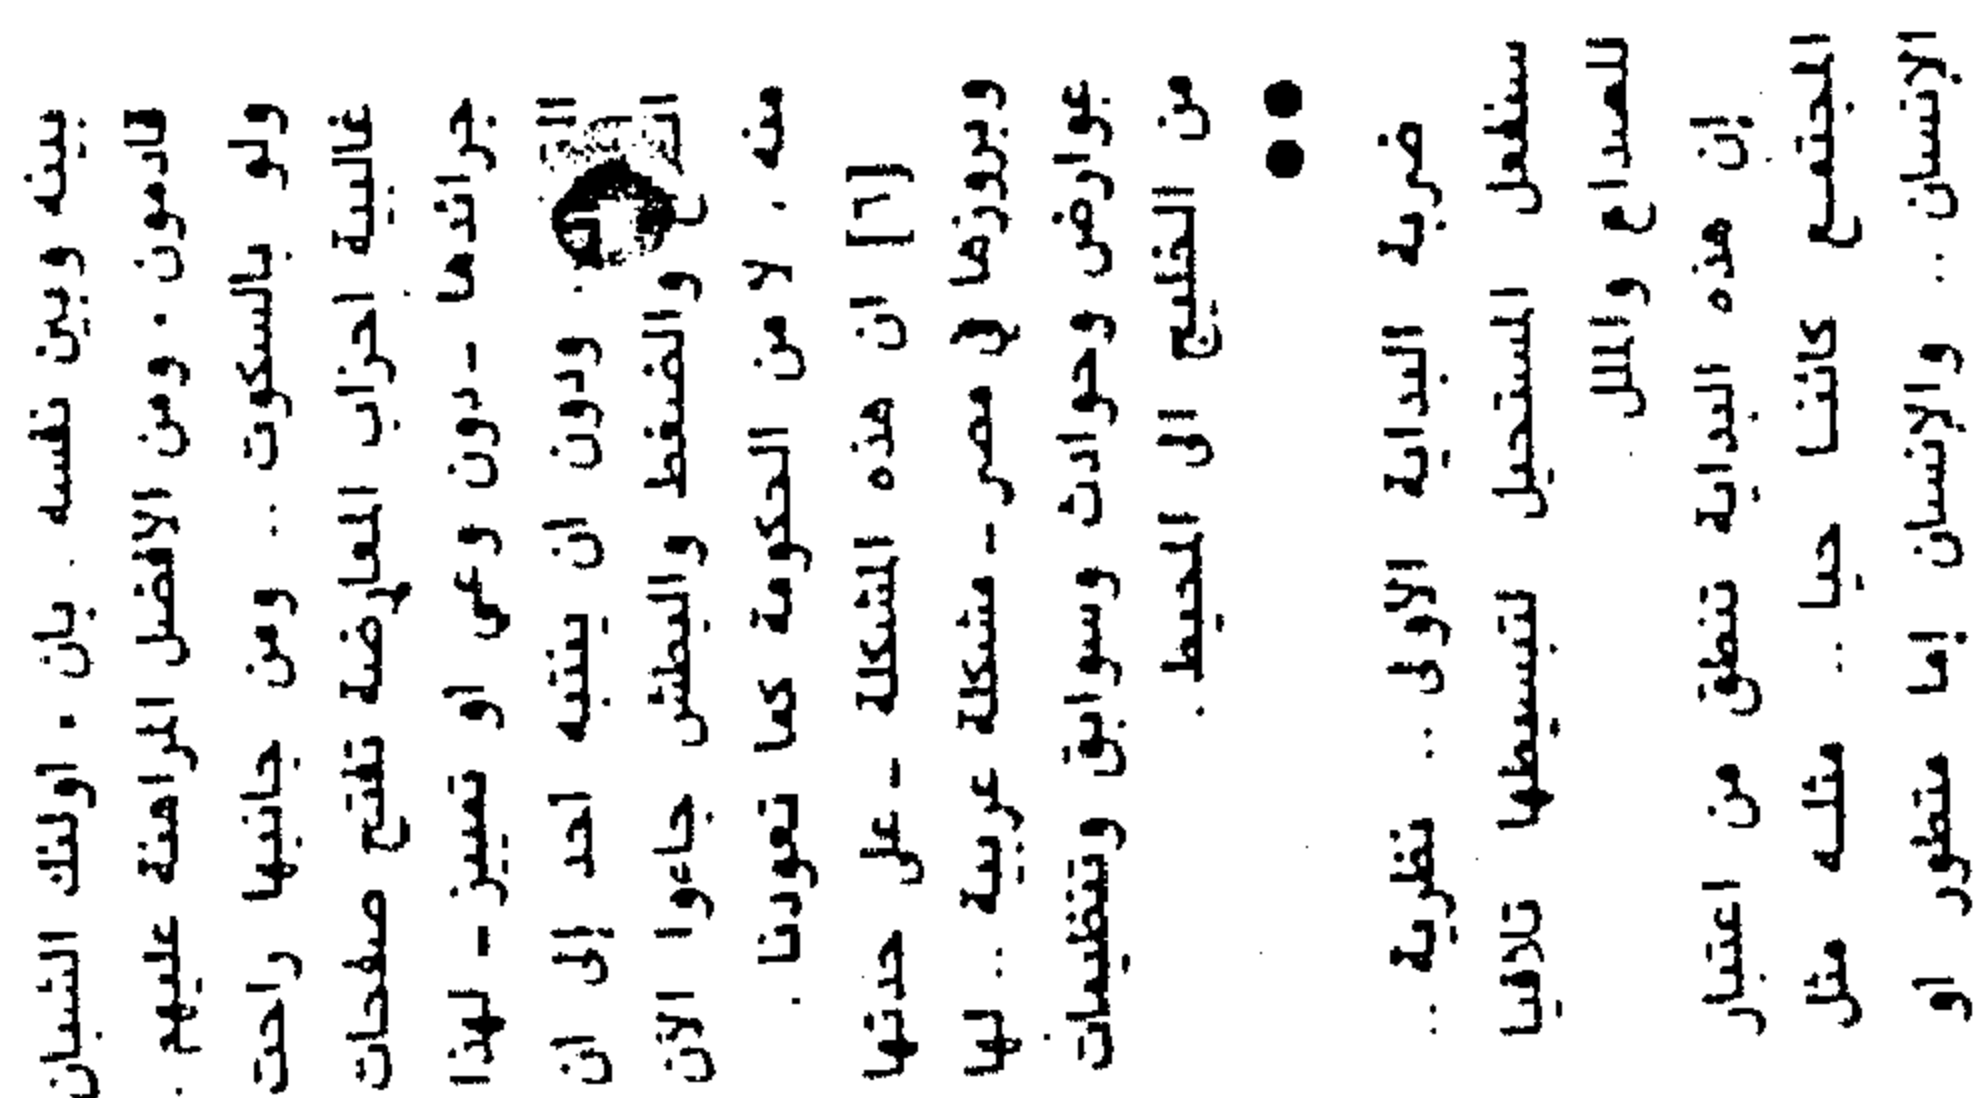 بينه وبين نفسه . بان ، اولئك الشبان
قادمون . ومن الافضل المراهنة عليهم .
ولو بالسكوت .. ومن جانبها راحت
غالبية احزاب المعارضة تفتح صفحات
جرائدها -دون وعي او تمييز- لهذا
ودون ان ينتبه احد إلى ان
والضغط والبطش جاءوا الآن
منه ، لا من الحكومة كما تعودنا .
[٦] ان هذه المشكلة -على حدتها
وبروزها في مصر- مشكلة عربية .. لها
عوارض وحوادث وسوابق وتنظيمات
من الخليج الى المحيط .
●●
ضربة البداية الاولى .. نظرية ..
سنفعل المستحيل لتبسيطها تلافيا
للصداع والملل
إن هذه البداية تنطلق من اعتبار
المجتمع كائنا حيا .. مثله مثل
الإنسان .. والإنسان إما متطور او